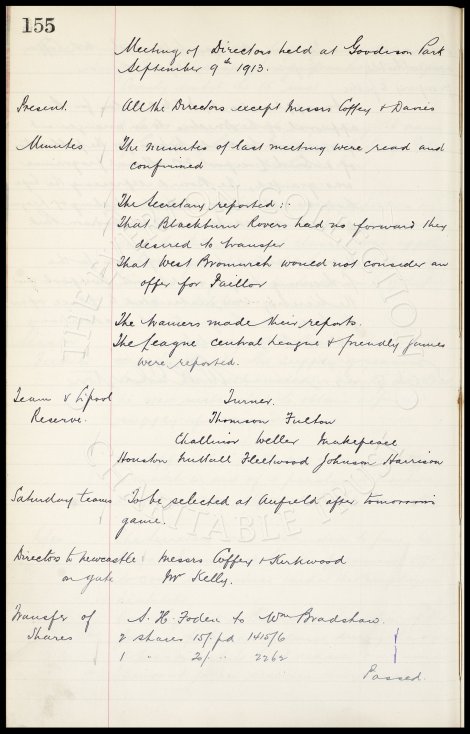 155
Meeting of Directors held at Goodison Park
September 9th 1913.
Present. All the Directors except Messrs Coffey & Davies
Minutes The minutes of last meeting were read and
confirmed
The Secretary reported:-
That Blackburn Rovers had no forward they
desired to transfer
That West Bromwich would not consider an
offer for Jaillor
The trainers made their reports.
The League central league & friendly games
were reported.
Team v L'pool Turner.
Reserve. Thomson Fulton
Challinor Weller Makepeace
Houston Nuttall Fleetwood Johnson Harrison
Saturday teams To be selected at Anfield after tomorrow's
game.
Directors to Newcastle Messrs Coffey & Kirkwood
on gate Mr Kelly.
Transfer of S. H. Foden to Wm Bradshaw.
Shares 2 shares 15/- pd 1415/6
1 " 20/- " 2262
Passed.